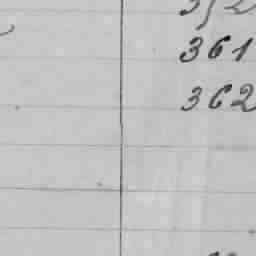 361
362